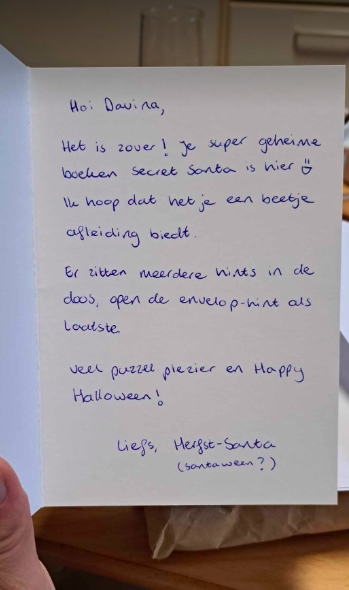 Hoi Davina,
Het is zover! Je super geheime
boeken Secret Santa is hier
Ik hoop dat het je een beetje
afleiding biedt.
Er zitten meerdere hints in de
doos, open de envelop-hint als
laatste.
Veel puzzel plezier en Happy
Halloween!
Liefs, Herfst-Santa
(Santaween?)